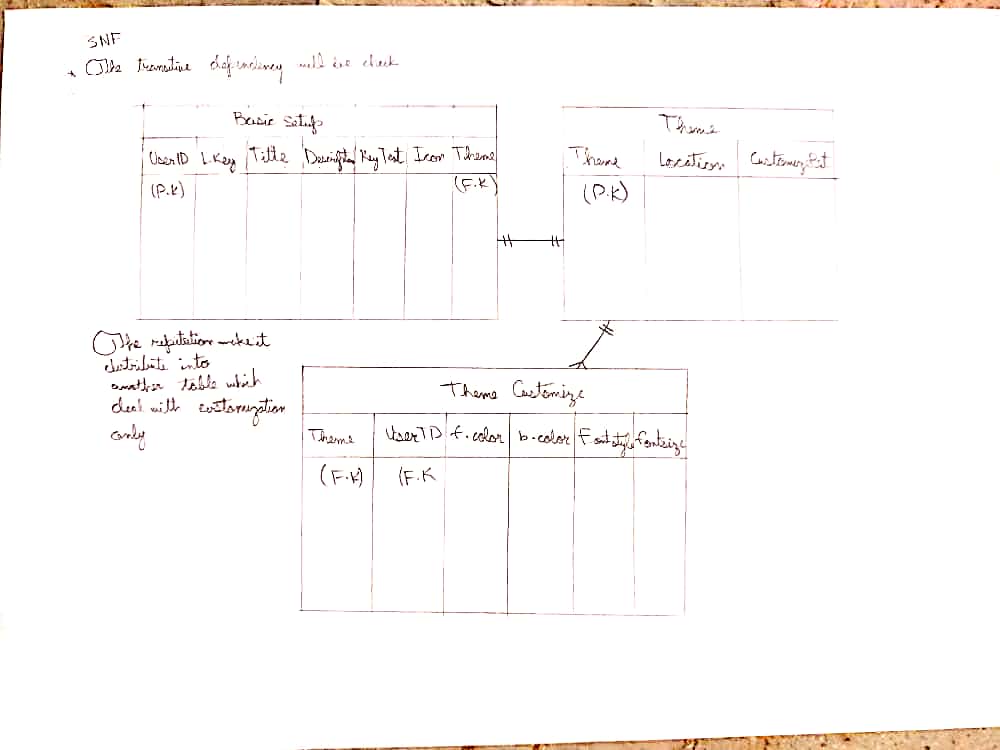 SNF
* The transitive dependency will be check
Basic Setup
UserID L.Key Title Description Key Text Icon Theme
(P.K) (F.K)
Theme
Theme Location Customiz Bit
(P.K)
The repitation
distribute into
another table which
deal with customization
only
Theme Customize
Theme UserID f.color b.color Fontstyle fontsize
(F.K) (F.K